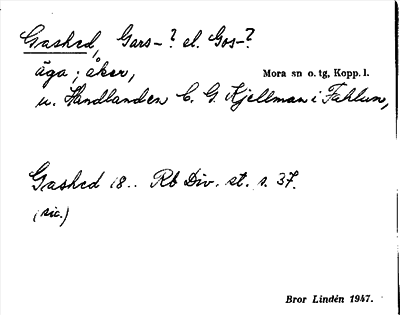 Gashed, Gars-? el. Gos-?
äga; åker,
Mora sn o. tg, Kopp. l.
u. Handlanden C. G. Kjellman i Fahlun,
Gashed 18.. Rb Div. st. s. 37.
(sic.)
Bror Lindén 1947.